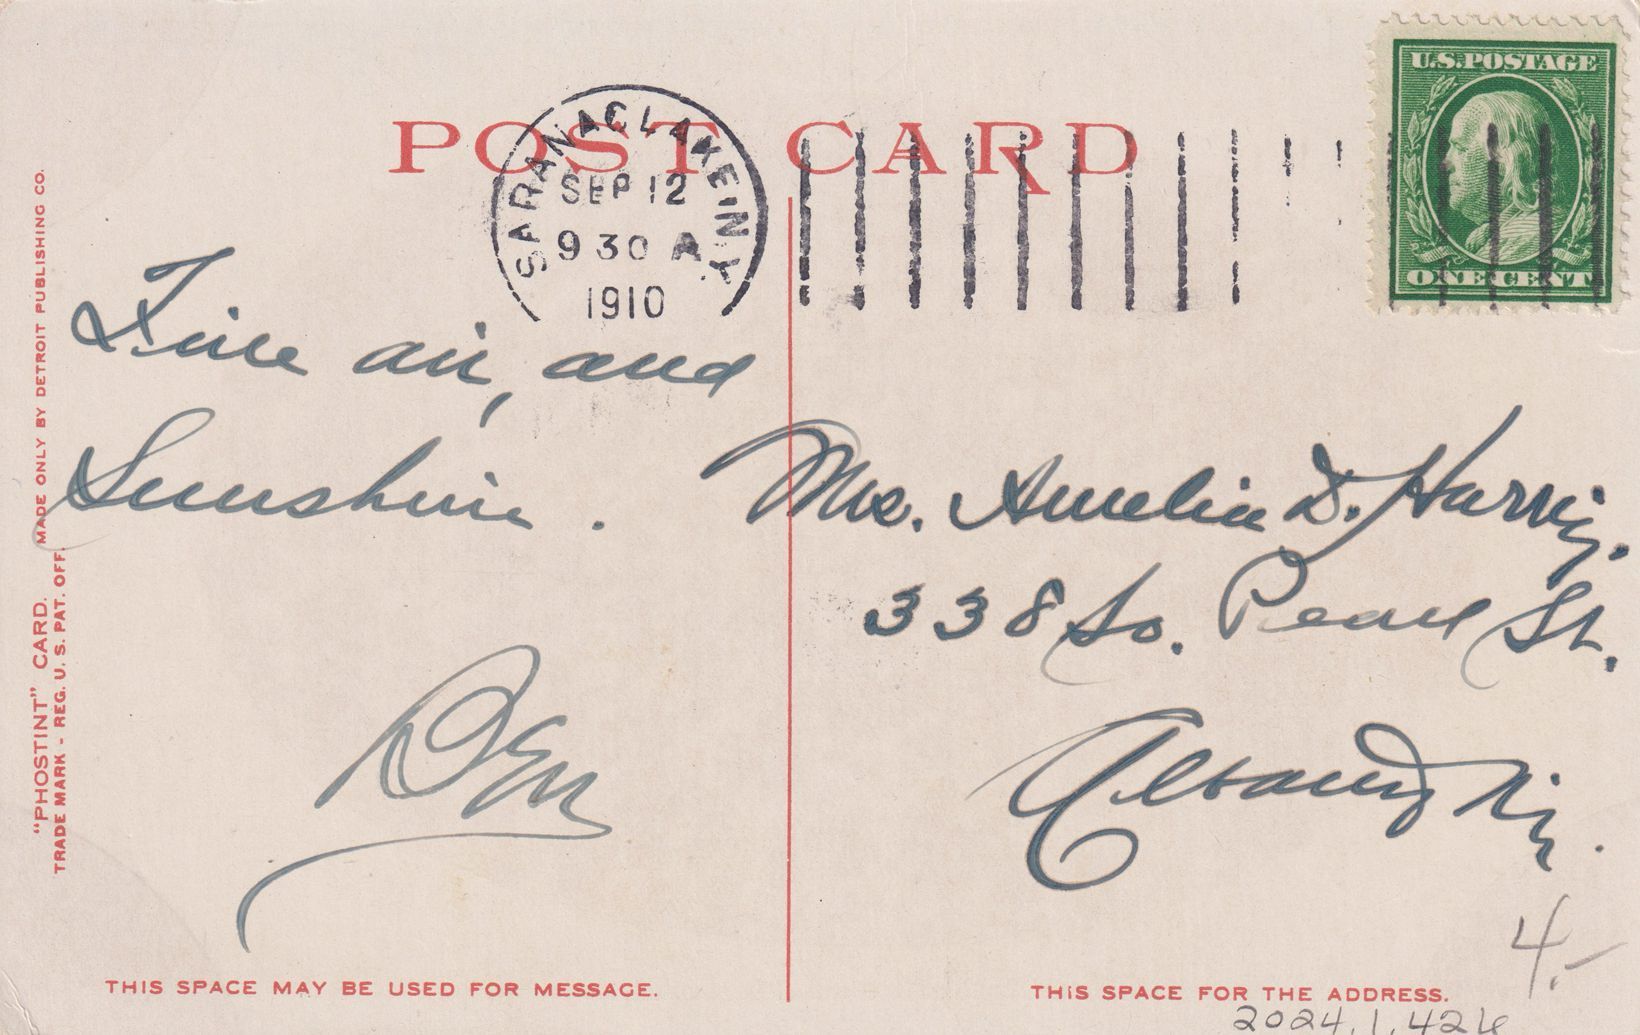 POST CARD
U.S.POSTAGE
ONE CENT
SARANAC LAKE N.Y.
SEP 12
9 30 A
1910
Fine air, and
Sunshine.
Mrs. Amelia D. Harris.
338 So. Pearl St.
Albany N.Y.
"PHOSTINT" CARD. MADE ONLY BY DETROIT PUBLISHING CO.
TRADE MARK - REG. U. S. PAT. OFF.
THIS SPACE MAY BE USED FOR MESSAGE.
THIS SPACE FOR THE ADDRESS.
4.-
2024.1.426